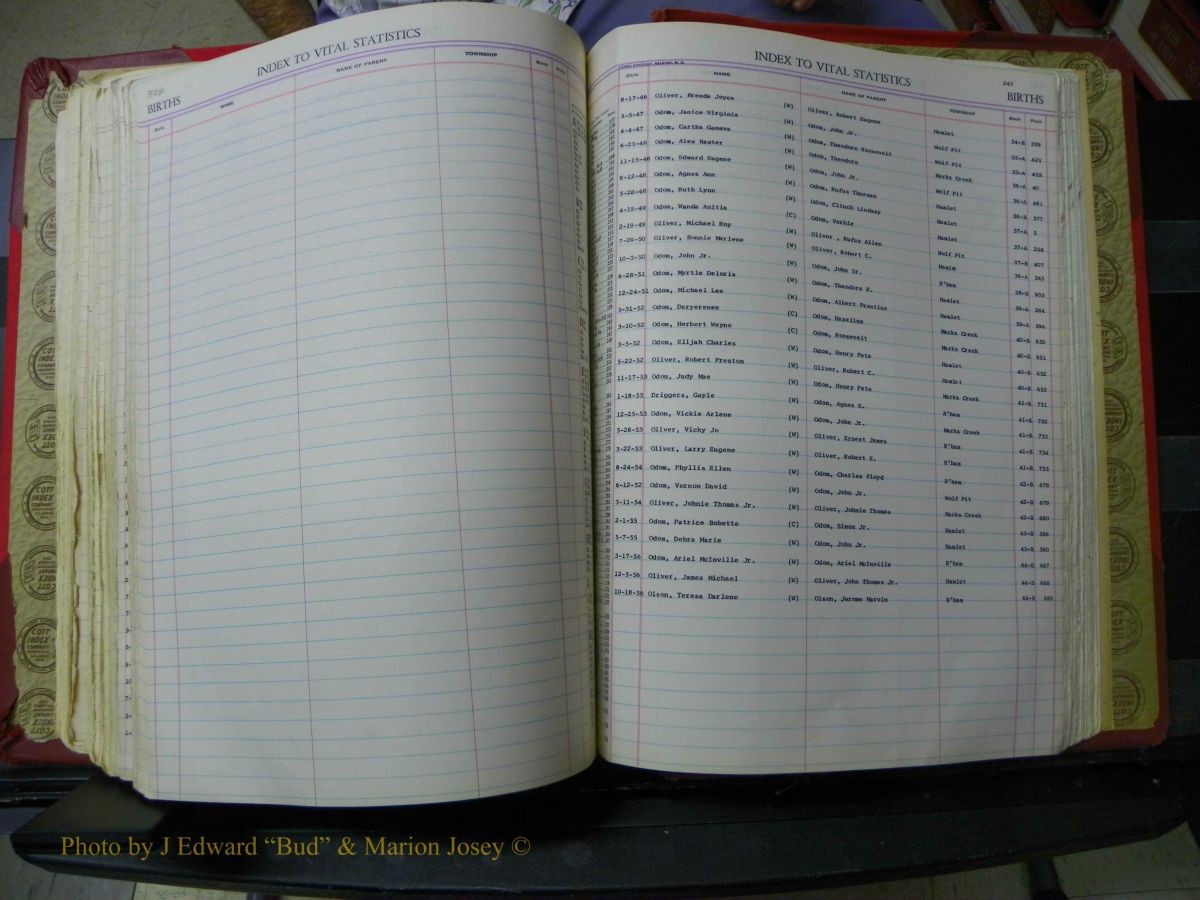 INDEX TO VITAL STATISTICS
BIRTHS
DATE NAME NAME OF PARENT TOWNSHIP BOOK PAGE
INDEX TO VITAL STATISTICS
245
BIRTHS
DATE NAME NAME OF PARENT TOWNSHIP BOOK PAGE
8-17-46 Oliver, Brenda Joyce (W) Oliver, Robert Eugene Hamlet 34-B 339
3-5-47 Odom, Janice Virginia (W) Odom, John Jr. Wolf Pit 35-A 425
4-4-47 Odom, Cartha Geneva (W) Odom, Theodore Roosevelt Wolf Pit 35-A 432
6-23-46 Odom, Alex Baxter (W) Odom, Theodore Marks Creek 36-A 40
11-15-48 Odom, Edward Eugene (W) Odom, John Jr. Wolf Pit 36-A 481
9-12-48 Odom, Agnes Ann (W) Odom, Rufus Thurman Hamlet 36-B 377
5-28-48 Odom, Ruth Lynn (W) Odom, Clinch Lindsay Hamlet 37-A 5
4-19-49 Odom, Wanda Anitia (C) Odom, Verble Hamlet 37-A 224
2-19-49 Oliver, Michael Roy (W) Oliver , Rufus Allen Wolf Pit 37-B 407
7-29-50 Oliver, Bonnie Marlene (W) Oliver, Robert C. Hamlet 38-A 343
10-3-50 Odom, John Jr. (W) Odom, John Sr. R'ham 38-B 503
6-28-51 Odom, Myrtle Deloris (W) Odom, Theodore R. Hamlet 39-A 284
12-24-51 Odom, Michael Lee (W) Odom, Albert Prentice Hamlet 39-A 596
5-31-52 Odom, Daryerenee (C) Odom, Hazeline Marks Creek 40-B 650
3-10-52 Odom, Herbert Wayne (C) Odom, Roosevelt Marks Creek 40-B 651
3-5-52 Odom, Elijah Charles (W) Odom, Henry Pete Hamlet 40-B 652
5-22-52 Oliver, Robert Preston (W) Oliver, Robert C. Hamlet 40-B 653
11-17-53 Odom, Judy Mae (W) Odom, Henry Pete Marks Creek 41-B 731
1-18-53 Driggers, Gayle (W) Odom, Agnes E. R'ham 41-B 732
12-25-53 Odom, Vickie Arlene (W) Odom, John Jr. Marks Creek 41-B 733
5-28-53 Oliver, Vicky Jo (W) Oliver, Ernest James R'ham 41-B 734
3-22-53 Oliver, Larry Eugene (W) Oliver, Robert S. R'ham 41-B 735
8-24-54 Odom, Phyllis Ellen (W) Odom, Charles Floyd R'ham 42-B 678
6-12-52 Odom, Vernon David (W) Odom, John Jr. Wolf Pit 42-B 679
3-11-54 Oliver, Johnie Thomas Jr. (W) Oliver, Johnie Thomas Marks Creek 42-B 680
2-1-55 Odom, Patrice Bobette (C) Odom, Simon Jr. Hamlet 43-B 586
5-7-55 Odom, Debra Marie (W) Odom, John Jr. Hamlet 43-B 590
3-17-56 Odom, Ariel McInville Jr. (W) Odom, Ariel McInville R'ham 44-B 667
12-5-56 Oliver, James Michael (W) Oliver, John Thomas Jr. Hamlet 44-B 668
10-18-56 Olson, Teresa Darlene (W) Olson, Jerome Marvin R'ham 44-B 669
COTT INDEX COMPANY
Photo by J Edward “Bud” & Marion Josey ©